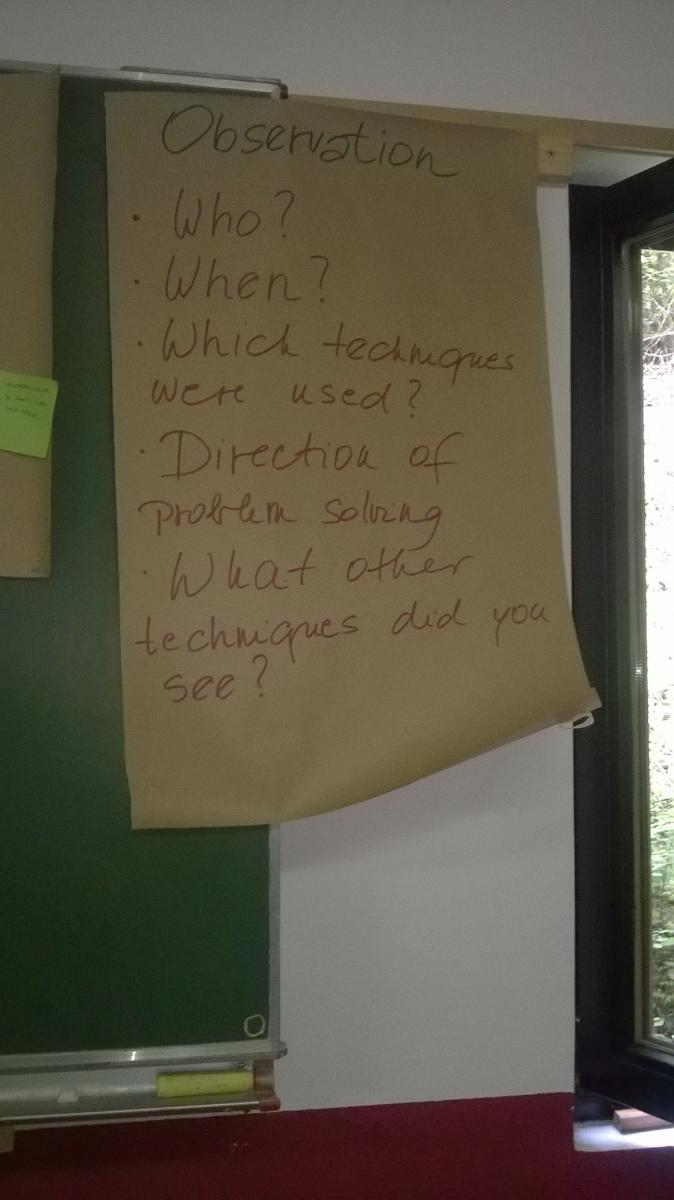 Observation
· Who?
· When?
· Which techniques
were used?
· Direction of
problem solving
· What other
techniques did you
see?